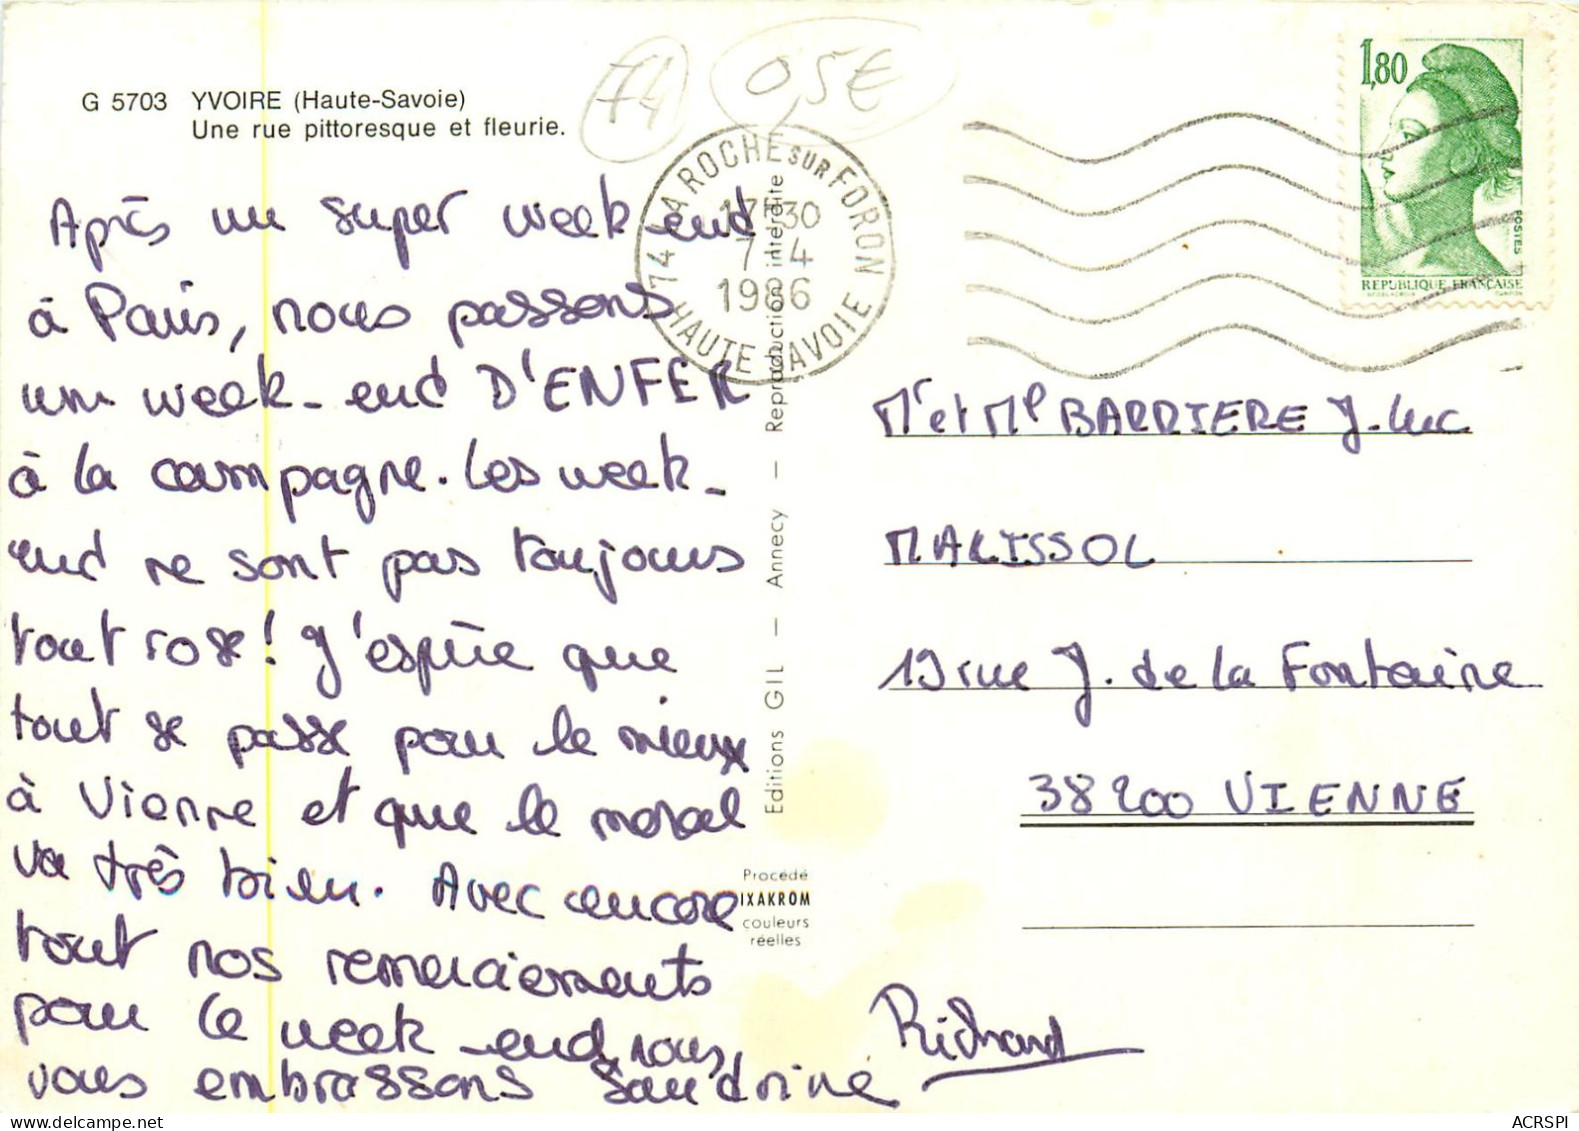 G 5703 YVOIRE (Haute-Savoie)
Une rue pittoresque et fleurie.
74
0,5€
74 LA ROCHE SUR FORON
17H30
7-4
1986
HAUTE SAVOIE
1,80
POSTES
REPUBLIQUE FRANÇAISE
Après un super week end
à Paris, nous passons
um week-end D'ENFER
à la campagne. Les week-
end ne sont pas toujours
tout rose! J'espère que
tout se passe pour le mieux
à Vienne et que le moral
va très bien. Avec encore
tout nos remerciements
pour le week end, nous
vous embrassons Sandrine
Richard
Mr et Me BARRIERE J-Luc
MALISSOL
19 rue J. de la Fontaine
38200 VIENNE
Editions GIL — Annecy — Reproduction interdite
Procédé
IXAKROM
couleurs
réelles
ACRSPI